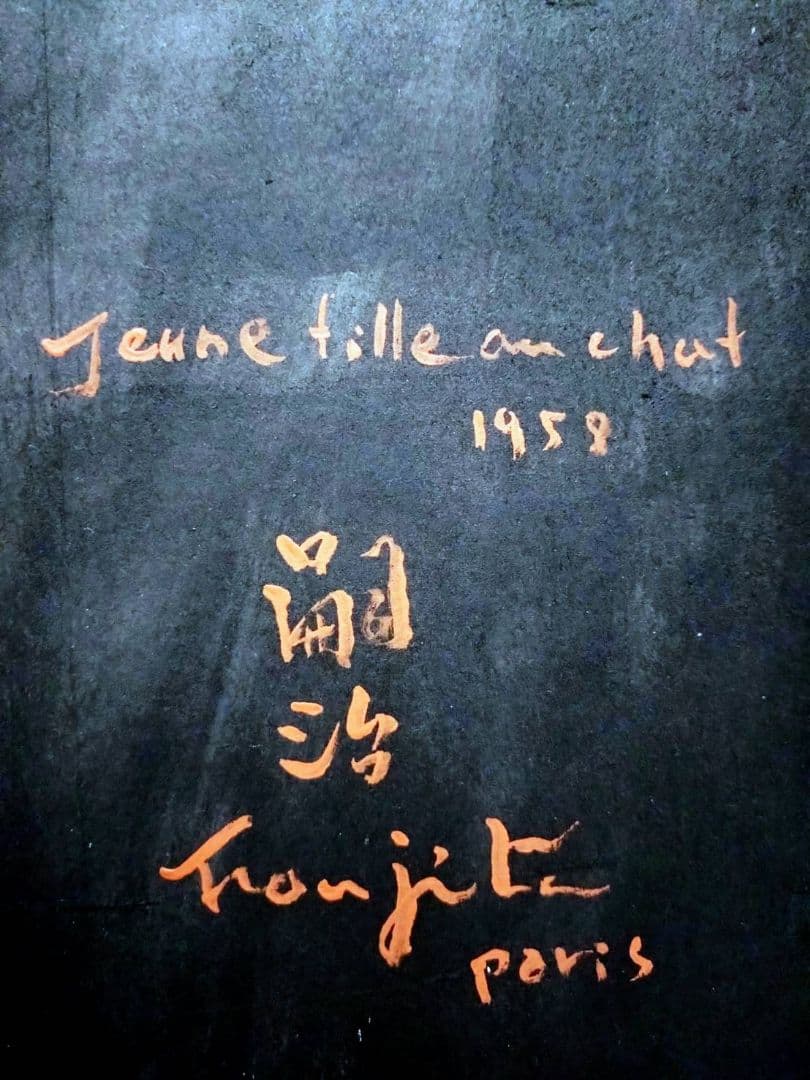 Jeune fille au chat
1958
嗣
治
Foujita
paris